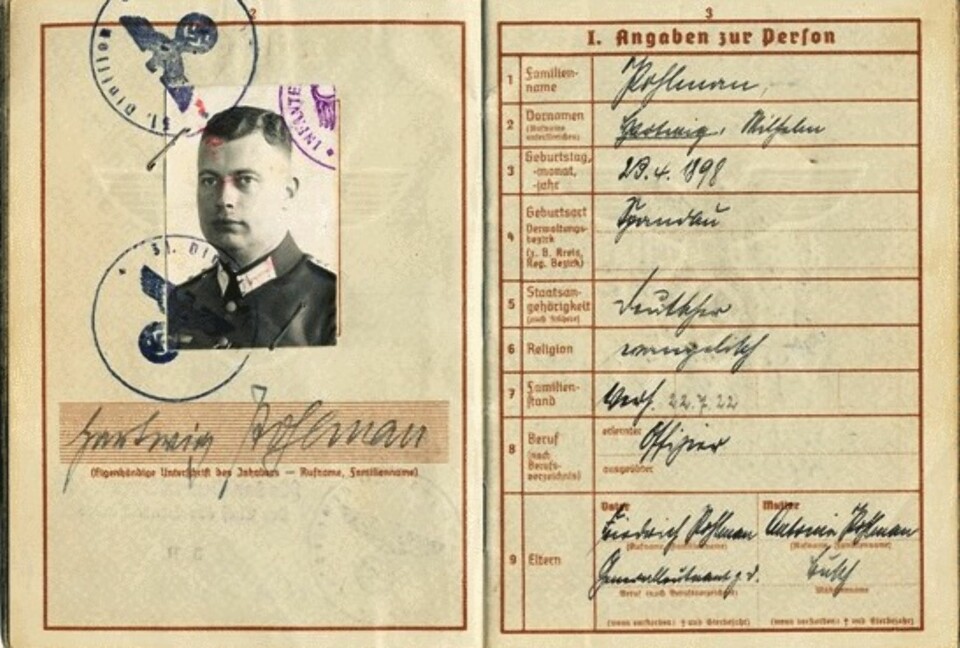 2
31. Division
INFANTE
31. Di
Hartwig Pohlman
(Eigenhändige Unterschrift des Inhabers — Rufname, Familienname)
3
I. Angaben zur Person
1 Familien-
name
Pohlman
2 Vornamen
(Rufname
unterstreichen)
Hartwig, Wilhelm
3 Geburtstag,
-monat,
-jahr
23.4.1898
4 Geburtsort
Verwaltungs-
bezirk
(z. B. Kreis,
Reg. Bezirk)
Spandau
5 Staatsan-
gehörigkeit
(auch frühere)
Deutscher
6 Religion
evangelisch
7 Familien-
stand
verh. 22.7.22
8 Beruf
(nach
Berufs-
verzeichnis)
erlernter
Offizier
ausgeübter
9 Eltern
Vater
Friedrich Pohlman
(Rufname, Familienname)
Generalleutnant z. d.
Beruf (nach Berufsverzeichnis)
(wenn verstorben: † und Sterbejahr)
Mutter
Antonie Pohlman
(Rufname, Familienname)
Busch
Mädchenname
(wenn verstorben: † und Sterbejahr)